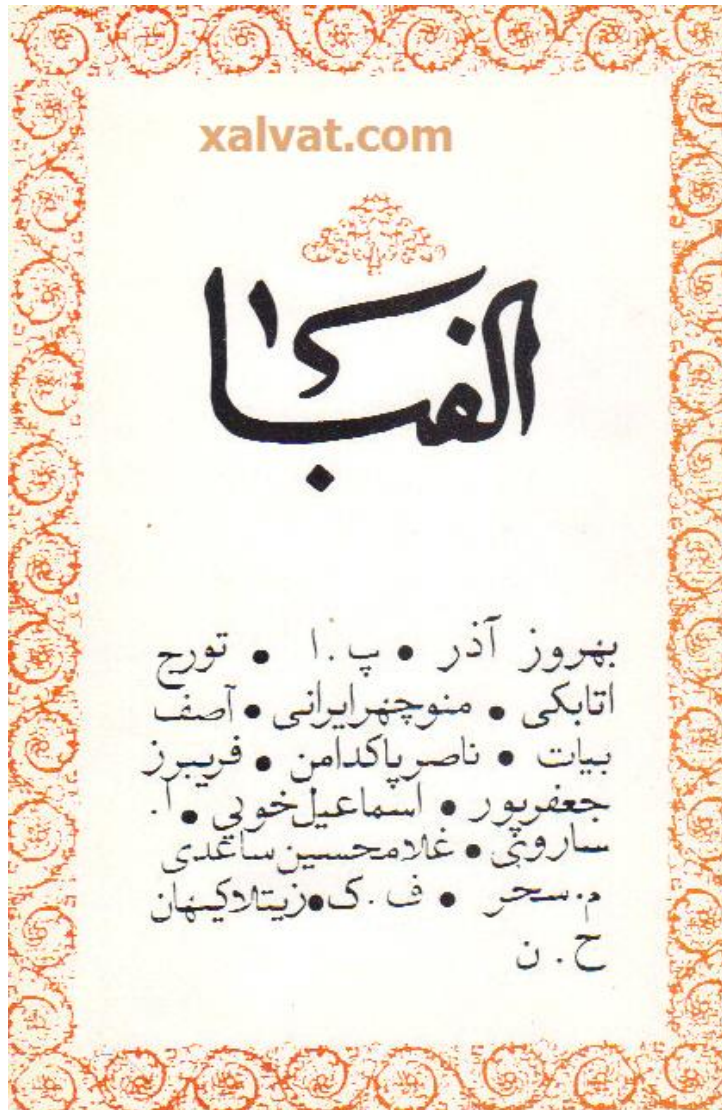 xalvat.com
الفبا
بهروز آذر • پ.ا • تورج
اتابکی • منوچهرایرانی • آصف
بیات • ناصرپاکدامن • فریبرز
جعفرپور • اسماعیل‌خویی • ا.
ساروی • غلامحسین‌ساعدی
م.سحر • ف.ک • زیتلاکیهان
ح.ن